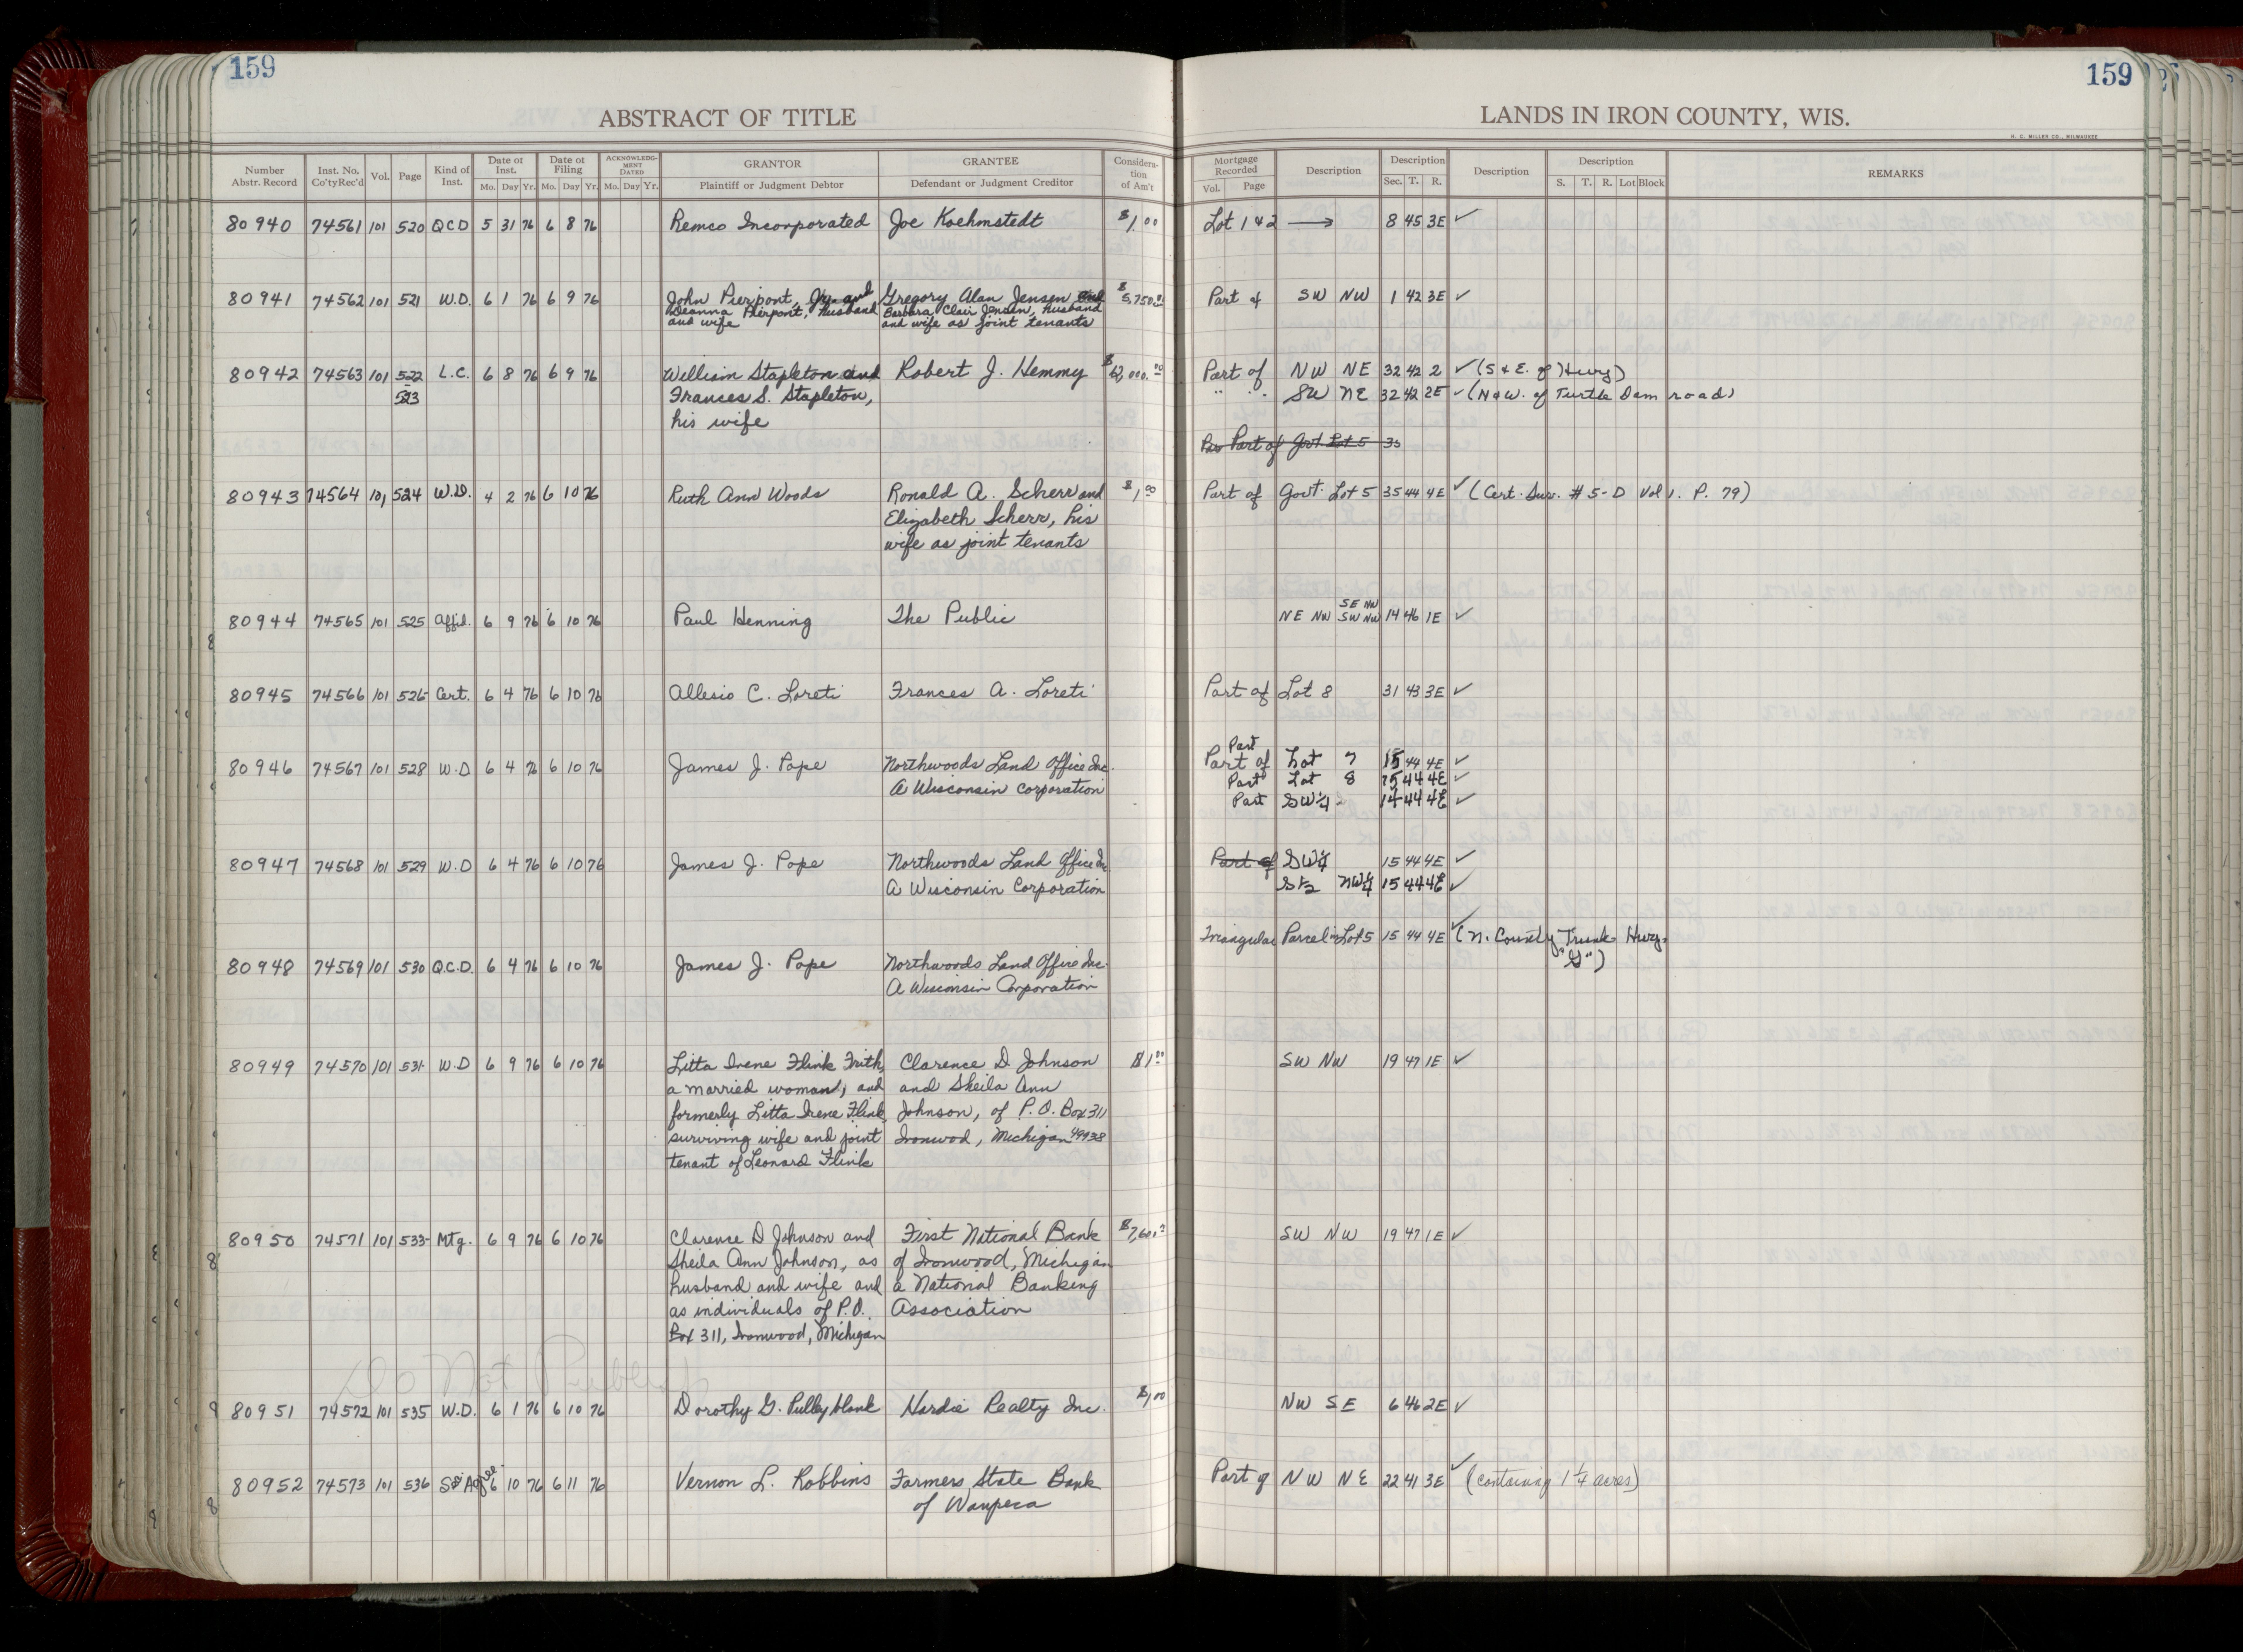 159
ABSTRACT OF TITLE
Number Abstr. Record Inst. No. Co'ty Rec'd Vol. Page Kind of Inst. Date of Inst. Mo. Day Yr. Date of Filing Mo. Day Yr. ACKNOWLEDGMENT DATED Mo. Day Yr. GRANTOR Plaintiff or Judgment Debtor GRANTEE Defendant or Judgment Creditor Consideration of Am't
80940 74561 101 520 QCD 5 31 76 6 8 76 Remco Incorporated Joe Koehmstedt $1.00
80941 74562 101 521 W.D. 6 1 76 6 9 76 John Pierpont, Jr. and Gregory Alan Jensen and $5,750.00
Deanna Pierpont, husband Barbara Clair Jensen, husband
and wife and wife as joint tenants
80942 74563 101 522 L.C. 6 8 76 6 9 76 William Stapleton and Robert J. Hemmy
523 Frances S. Stapleton,
his wife
80943 74564 101 524 W.D. 4 2 76 6 10 76 Ruth Ann Woods Ronald A. Scherr and $1.00
Elizabeth Scherr, his
wife as joint tenants
80944 74565 101 525 Affid. 6 9 76 6 10 76 Paul Henning The Public
80945 74566 101 526 Cert. 6 4 76 6 10 76 Allesio C. Loreti Frances A. Loreti
80946 74567 101 528 W.D 6 4 76 6 10 76 James J. Pope Northwoods Land Office Inc.
A Wisconsin Corporation
80947 74568 101 529 W.D 6 4 76 6 10 76 James J. Pope Northwoods Land Office Inc
A Wisconsin Corporation
80948 74569 101 530 Q.C.D. 6 4 76 6 10 76 James J. Pope Northwoods Land Office Inc.
A Wisconsin Corporation
80949 74570 101 531- W.D 6 9 76 6 10 76 Litta Irene Flink Frith, Clarence D Johnson $1.00
a married woman, and and Sheila Ann
formerly Litta Irene Flink, Johnson, of P.O. Box 311
surviving wife and joint Ironwod, Michigan 49938
tenant of Leonard Flink
80950 74571 101 533- Mtg. 6 9 76 6 10 76 Clarence D Johnson and First National Bank
Sheila Ann Johnson, as of Ironwood, Michigan
husband and wife and a National Banking
as individuals of P.O. Association
Box 311, Ironwood, Michigan
Do Not Publish
80951 74572 101 535 W.D. 6 1 76 6 10 76 Dorothy G. Pullyblank Hardie Realty Inc. $1.00
80952 74573 101 536 6 10 76 6 11 76 Vernon L. Robbins Farmers State Bank
of Waupeca
159
LANDS IN IRON COUNTY, WIS.
H. C. MILLER CO., MILWAUKEE
Mortgage Recorded Vol. Page Description Description Sec. T. R. Description Description S. T. R. Lot Block REMARKS
Lot 1 & 2 → 8 45 3E ✓
Part of SW NW 1 42 3E ✓
Part of NW NE 32 42 2 ✓ (S & E. of Hwy)
" " SW NE 32 42 2E ✓ (N & W. of Turtle Dam road)
Part of Govt. Lot 5 35
Part of Govt. Lot 5 35 44 4E ✓ (Cert. Sur. # 5-D Vol 1. P. 79)
SE NW
NE NW SW NW 14 46 1E ✓
Part of Lot 8 31 43 3E ✓
Part
Part of Lot 7 15 44 4E ✓
Part Lot 8 15 44 4E ✓
Part SW¼ 14 44 4E ✓
Part of SW¼ 15 44 4E ✓
S½ NW¼ 15 44 4E ✓
Triangular Parcel in Lot 5 15 44 4E ✓ (N. County Trunk Hwy.
"G")
SW NW 19 47 1E ✓
SW NW 19 47 1E ✓
NW SE 6 46 2E ✓
Part of NW NE 22 41 3E ✓ (containing 1¼ acres)